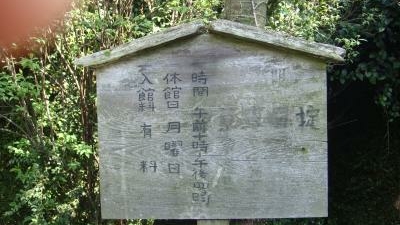 掟
時間 午前十時~午後四時
休館日 月曜日
入館料 有料